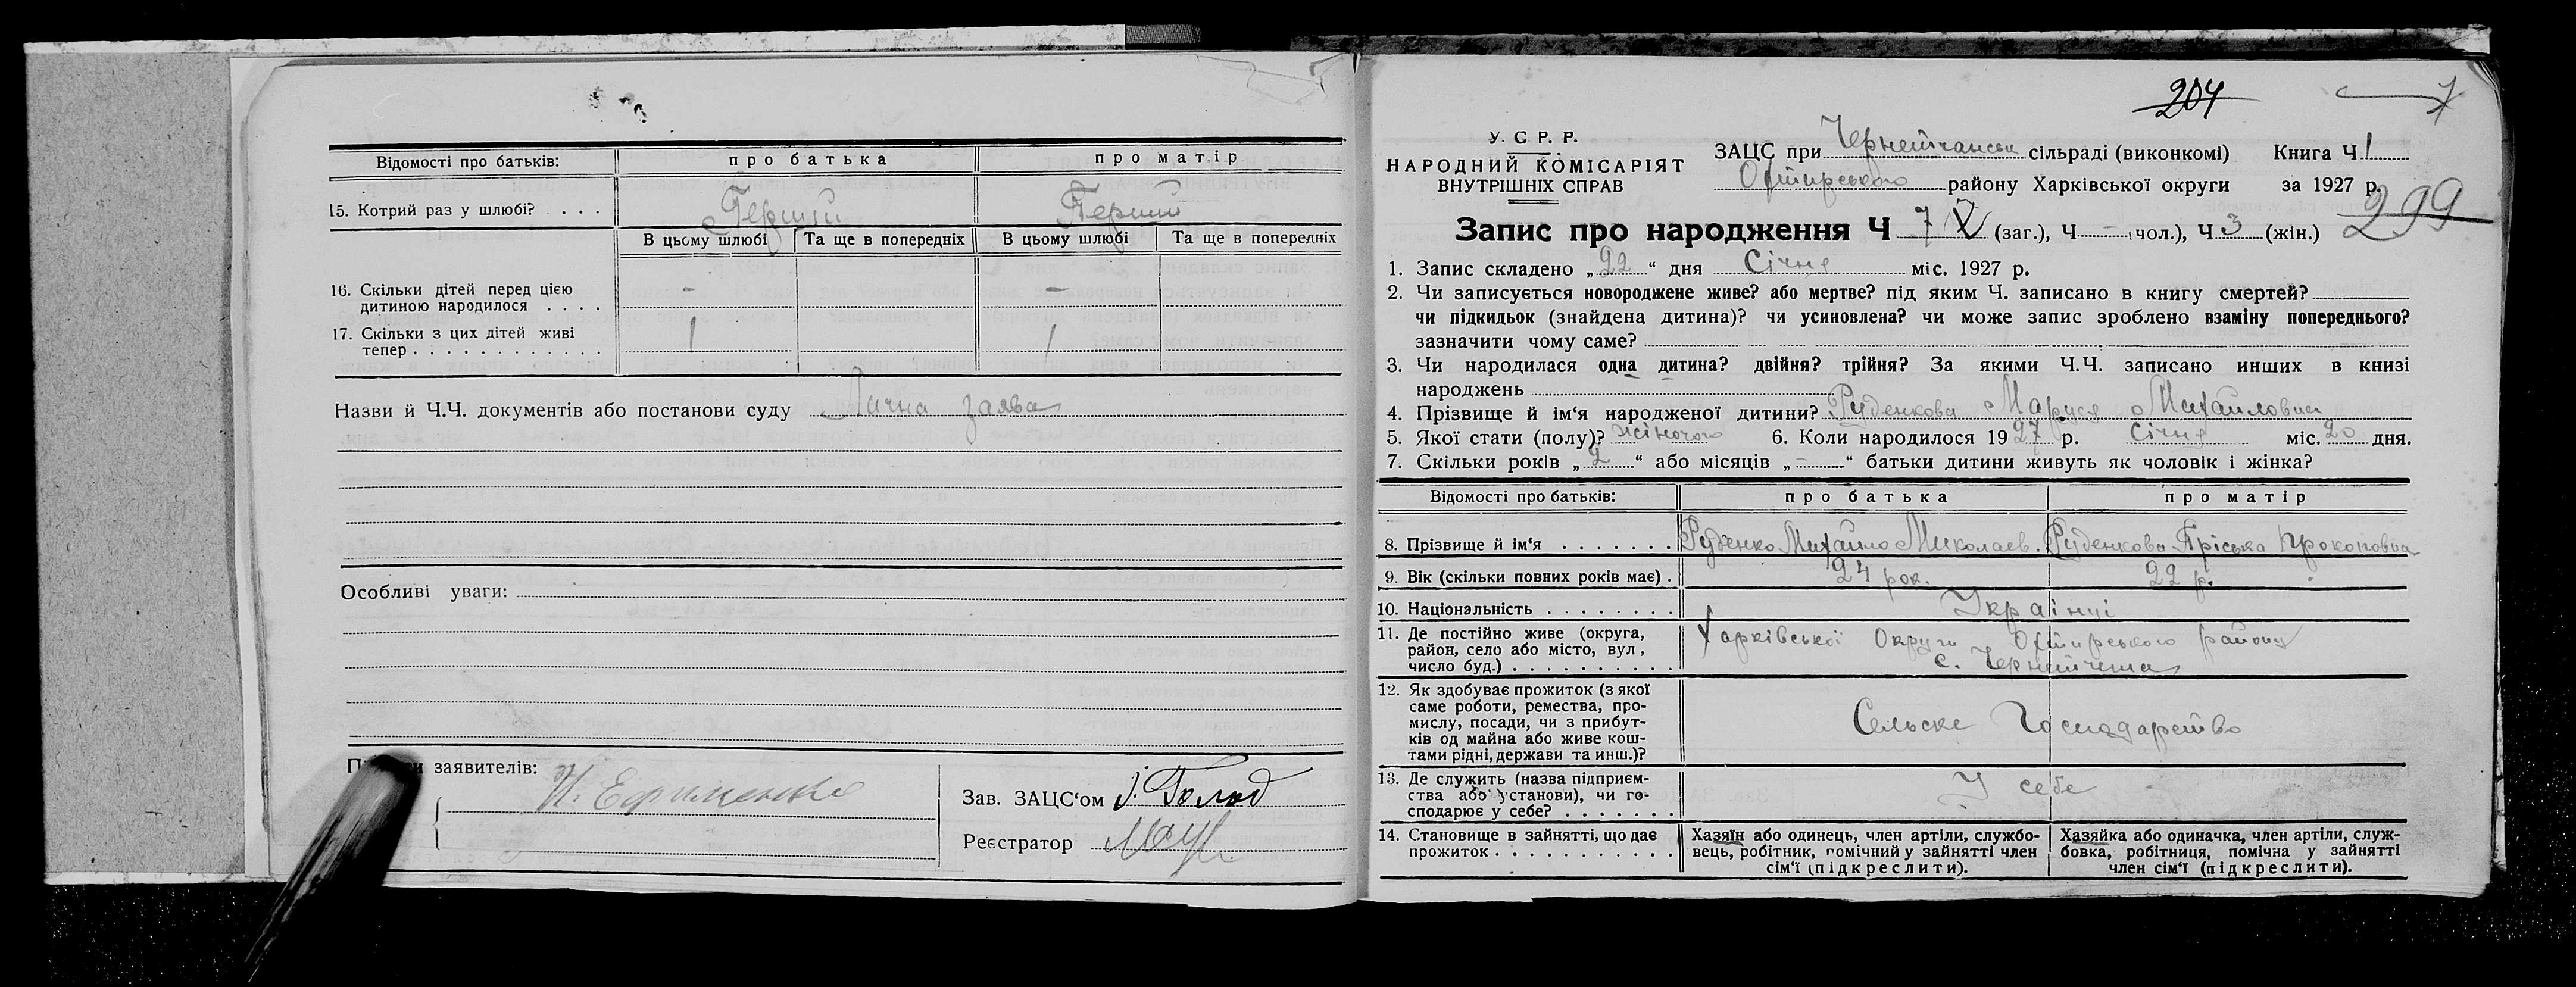 Відомості про батьків: про батька про матір
15. Котрий раз у шлюбі? . . . . Перший Перший
В цьому шлюбі Та ще в попередніх В цьому шлюбі Та ще в попередніх
16. Скільки дітей перед цією - -
дитиною народилося . . . .
17. Скільки з цих дітей живі 1 1
тепер . . . . . . . . . . . .
Назви й Ч.Ч. документів або постанови суду Лична заява
Особливі уваги:
заявителів: Ефименко
Зав. ЗАЦС‘ом І. Голод
Реєстратор
204 7
У. С. Р. Р.
НАРОДНИЙ КОМІСАРІЯТ
ВНУТРІШНІХ СПРАВ
ЗАЦС при Чернетчанськ сільраді (виконкомі) Книга Ч 1
Охтирського району Харківської округи за 1927 р.
299
Запис про народження Ч 7 (заг.), Ч - (чол.), Ч 3 (жін.)
1. Запис складено „22“ дня Січня міс. 1927 р.
2. Чи записується новороджене живе? або мертве? під яким Ч. записано в книгу смертей?
чи підкидьок (знайдена дитина)? чи усиновлена? чи може запис зроблено взаміну попереднього?
зазначити чому саме?
3. Чи народилася одна дитина? двійня? трійня? За якими Ч.Ч. записано инших в книзі
народжень
4. Прізвище й ім‘я народженої дитини? Руденкова Маруся Михайловна
5. Якої стати (полу)? жіночого 6. Коли народилося 1927 р. Січня міс. 20 дня.
7. Скільки років „2“ або місяців „-“ батьки дитини живуть як чоловік і жінка?
Відомості про батьків: про батька про матір
8. Прізвище й ім‘я . . . . . . . Руденко Михайло Миколаєв. Руденкова Пріська Прокоповна
9. Вік (скільки повних років має) . 24 рок. 22 р.
10. Національність . . . . . . . . Українці
11. Де постійно живе (округа, Харківської Округи Охтирського району
район, село або місто, вул, с. Чернетчина
число буд.) . . . . . . . . . .
12. Як здобуває прожиток (з якої
саме роботи, ремества, про-
мислу, посади, чи з прибут- Сельске Господарство
ків од майна або живе кош-
тами рідні, держави та инш.)?
13. Де служить (назва підприєм- У себе
ства або установи), чи го-
сподарює у себе? . . . . . . .
14. Становище в зайнятті, що дає Хазяїн або одинець, член артіли, службо- Хазяйка або одиначка, член артіли, служ-
прожиток . . . . . . . . . . . вець, робітник, помічний у зайнятті член бовка, робітниця, помічна у зайнятті
сім‘ї (підкреслити). член сім‘ї (підкреслити).